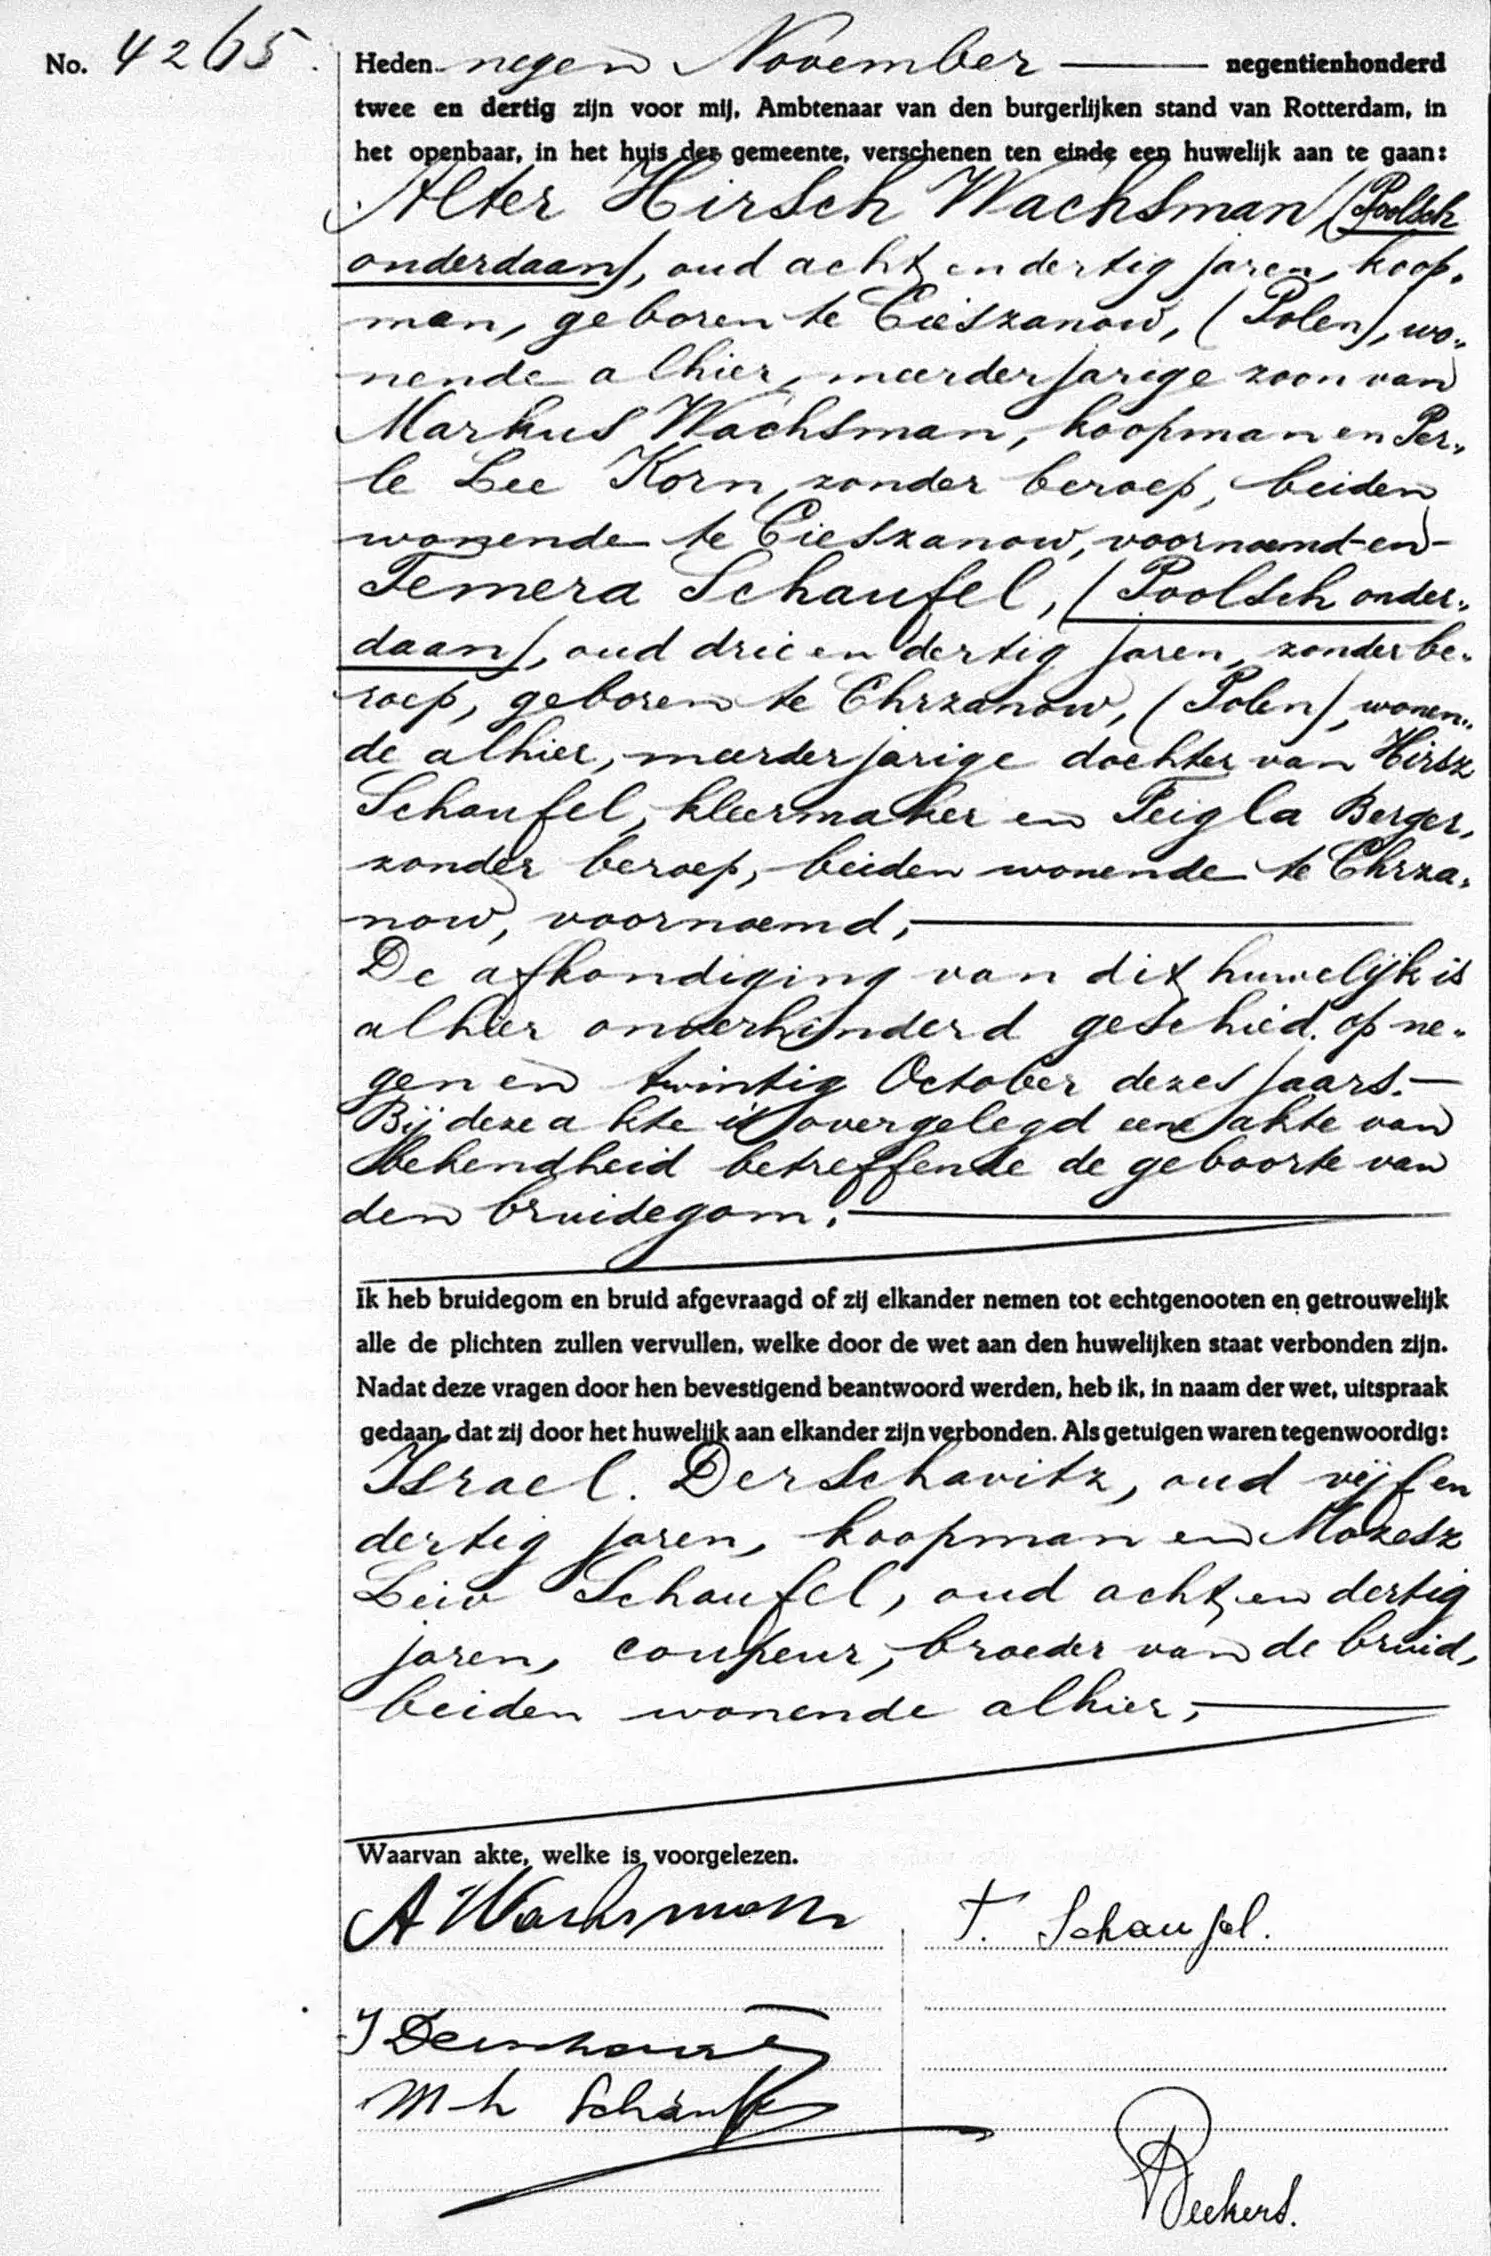 No. 4265.
Heden negen November negentienhonderd
twee en dertig zijn voor mij, Ambtenaar van den burgerlijken stand van Rotterdam, in
het openbaar, in het huis der gemeente, verschenen ten einde een huwelijk aan te gaan:
Alter Hirsch Wachsman (Poolsch
onderdaan), oud acht en dertig jaren, koop„
man, geboren te Cieszanow, (Polen), wo„
nende alhier, meerderjarige zoon van
Markus Wachsman, koopman en Per„
le Lee Korn, zonder beroep, beiden
wonende te Cieszanow, voornoemd en
Temera Schaufel, (Poolsch onder„
daan), oud drie en dertig jaren, zonder be„
roep, geboren te Chrzanow, (Polen), wonen„
de alhier, meerderjarige dochter van Hirsz
Schaufel, kleermaker en Feigla Berger,
zonder beroep, beiden wonende te Chrza„
now, voornoemd,
De afkondiging van dit huwelijk is
alhier onverhinderd geschied op ne„
gen en twintig October dezes jaars.
Bij deze akte is overgelegd eene akte van
bekendheid betreffende de geboorte van
den bruidegom.
Ik heb bruidegom en bruid afgevraagd of zij elkander nemen tot echtgenooten en getrouwelijk
alle de plichten zullen vervullen, welke door de wet aan den huwelijken staat verbonden zijn.
Nadat deze vragen door hen bevestigend beantwoord werden, heb ik, in naam der wet, uitspraak
gedaan, dat zij door het huwelijk aan elkander zijn verbonden. Als getuigen waren tegenwoordig:
Israel Derschavitz, oud vijf en
dertig jaren, koopman en Mozesz
Leiv Schaufel, oud acht en dertig
jaren, coupeur, broeder van de bruid,
beiden wonende alhier,
Waarvan akte, welke is voorgelezen.
A Wachsman T. Schaufel.
M L Schaufel